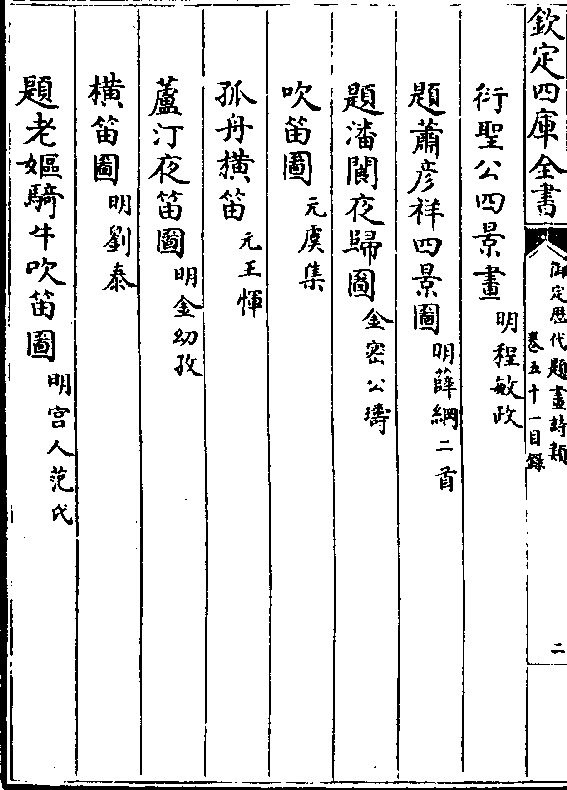 欽定四庫全書
御定歴代題畫詩類
卷五十一目錄
二
衍聖公四景畫 明程敏政
題蕭彦祥四景圖 明薛綱二首
題潘閬夜歸圖 金密公璹
吹笛圖 元虞集
孤舟横笛 元王惲
蘆汀夜笛圖 明金幼孜
横笛圖 明劉泰
題老嫗騎牛吹笛圖 明宫人范氏